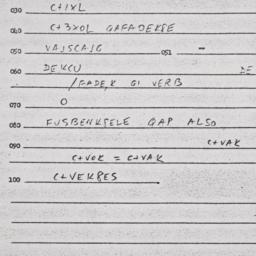 030 C+1XL
040 C+3XOL GAFADEKSE
050 VAJSCAJG 051 -
060 DEKCU DE
/FADE,K GI VERB
070 O
080 FUSBENKSELE GAP ALSO
090 C+VAK
C+VOK = C+VAK
100 C+VEKPES